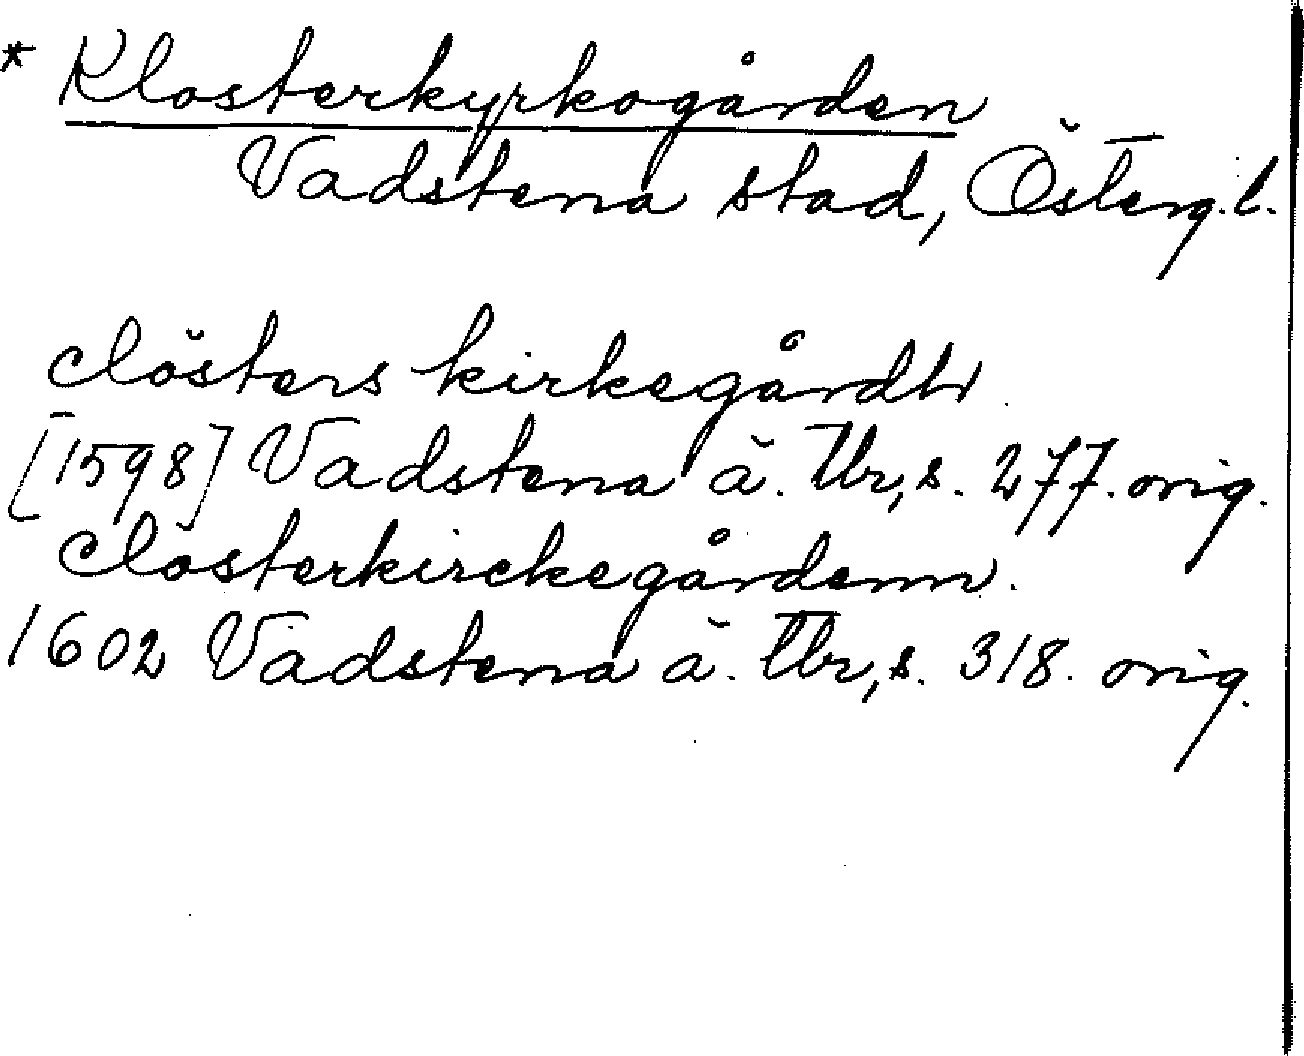 * Klosterkyrkogården
Vadstena stad, Österg. l.
clösters kirkegårdh
[1598] Vadstena ä. Tbr, s. 277. orig.
Clösterkirckegårdenn.
1602 Vadstena ä. Tbr, s. 318. orig.